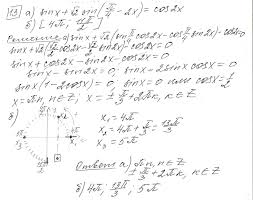 13 а) sinx + √2 sin(π/4 - 2x) = cos2x
б) [4π;
Решение а) sinx + √2 (sin π/4 cos2x - cos π/4 sin2x) - cos2x = 0
sinx + cos2x - sin2x - cos2x = 0
sinx - sin2x = 0, sinx - 2sinx cosx = 0
sinx(1 - 2cosx) = 0, sinx = 0 или cosx = 1/2
x = πn, n∈Z; x = ± π/3 + 2πk, k∈Z
б)
x₁ = 4π
x₂ = 4π + π/3 = 13π/3
x₃ = 5π
Ответ: а) πn, n∈Z
± π/3 + 2πk, k∈Z
б) 4π; 13π/3; 5π